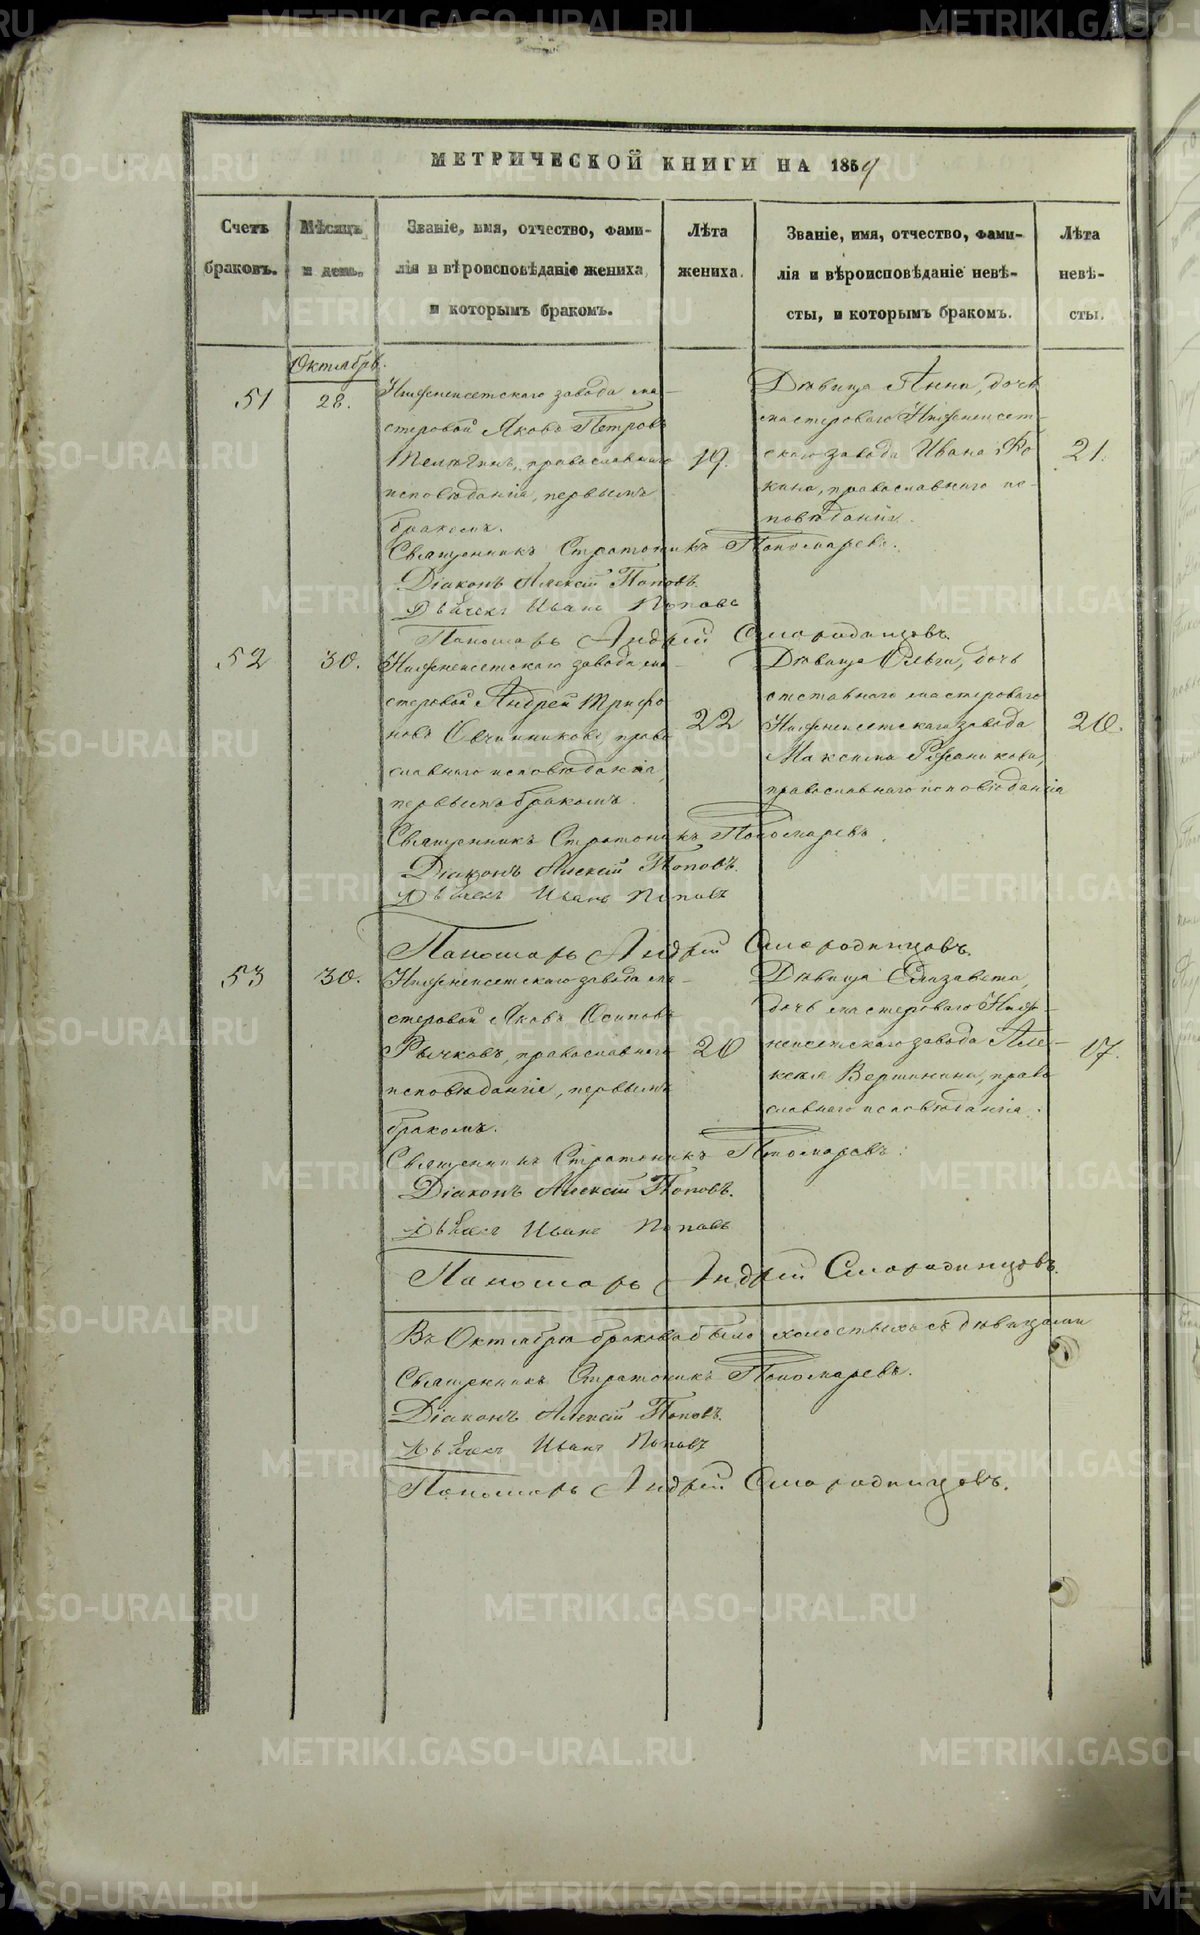 МЕТРИЧЕСКОЙ КНИГИ НА 1859
Счетъ браковъ.
Мѣсяцъ и день.
Званіе, имя, отчество, фами-
лія и вѣроисповѣданіе жениха,
и которымъ бракомъ.
Лѣта жениха.
Званіе, имя, отчество, фами-
лія и вѣроисповѣданіе невѣ-
сты, и которымъ бракомъ.
Лѣта невѣ-
сты.
Октябрь.
51
28.
Нижнеисетскаго завода ма-
стеровой Яковъ Петровъ
Телѣгинъ, православнаго
исповѣданія, первымъ
бракомъ.
19.
Дѣвица Анна, дочь
мастероваго Нижнеисет-
скаго завода Ивана
православнаго ис-
повѣданія.
21.
Священникъ Стратоникъ Пономаревъ.
Діаконъ Алексій Поповъ.
Дьячекъ Иванъ Поповъ
Пономарь Андрей Смородинцовъ.
52
30.
Нижнеисетскаго завода ма-
стеровой Андрей Трифо
новъ Овчинниковъ, право
славнаго исповѣданія,
первымъ бракомъ.
22
Дѣвица Ольга, дочь
отставнаго мастероваго
Нижнеисетскаго завода
Максима
православнаго исповѣданія
20.
Священникъ Стратоникъ Пономаревъ.
Діаконъ Алексій Поповъ.
Дьячекъ Иванъ Поповъ
Пономарь Андрей Смородинцовъ.
53
30.
Нижнеисетскаго завода ма-
стеровой Яковъ Осиповъ
Рычковъ, православнаго
исповѣданія, первымъ
бракомъ.
20
Дѣвица Елизавета,
дочь мастероваго Ниж-
неисетскаго завода Але-
ксѣя Вершинина, право
славнаго исповѣданія.
17.
Священникъ Стратоникъ Пономаревъ.
Діаконъ Алексій Поповъ.
Дьячекъ Иванъ Поповъ
Пономарь Андрей Смородинцовъ.
Въ Октябрѣ браковъ было холостыхъ съ дѣвицами
Священникъ Стратоникъ Пономаревъ.
Діаконъ Алексій Поповъ.
Дьячекъ Иванъ Поповъ
Пономарь Андрей Смородинцовъ.
METRIKI.GASO-URAL.RU